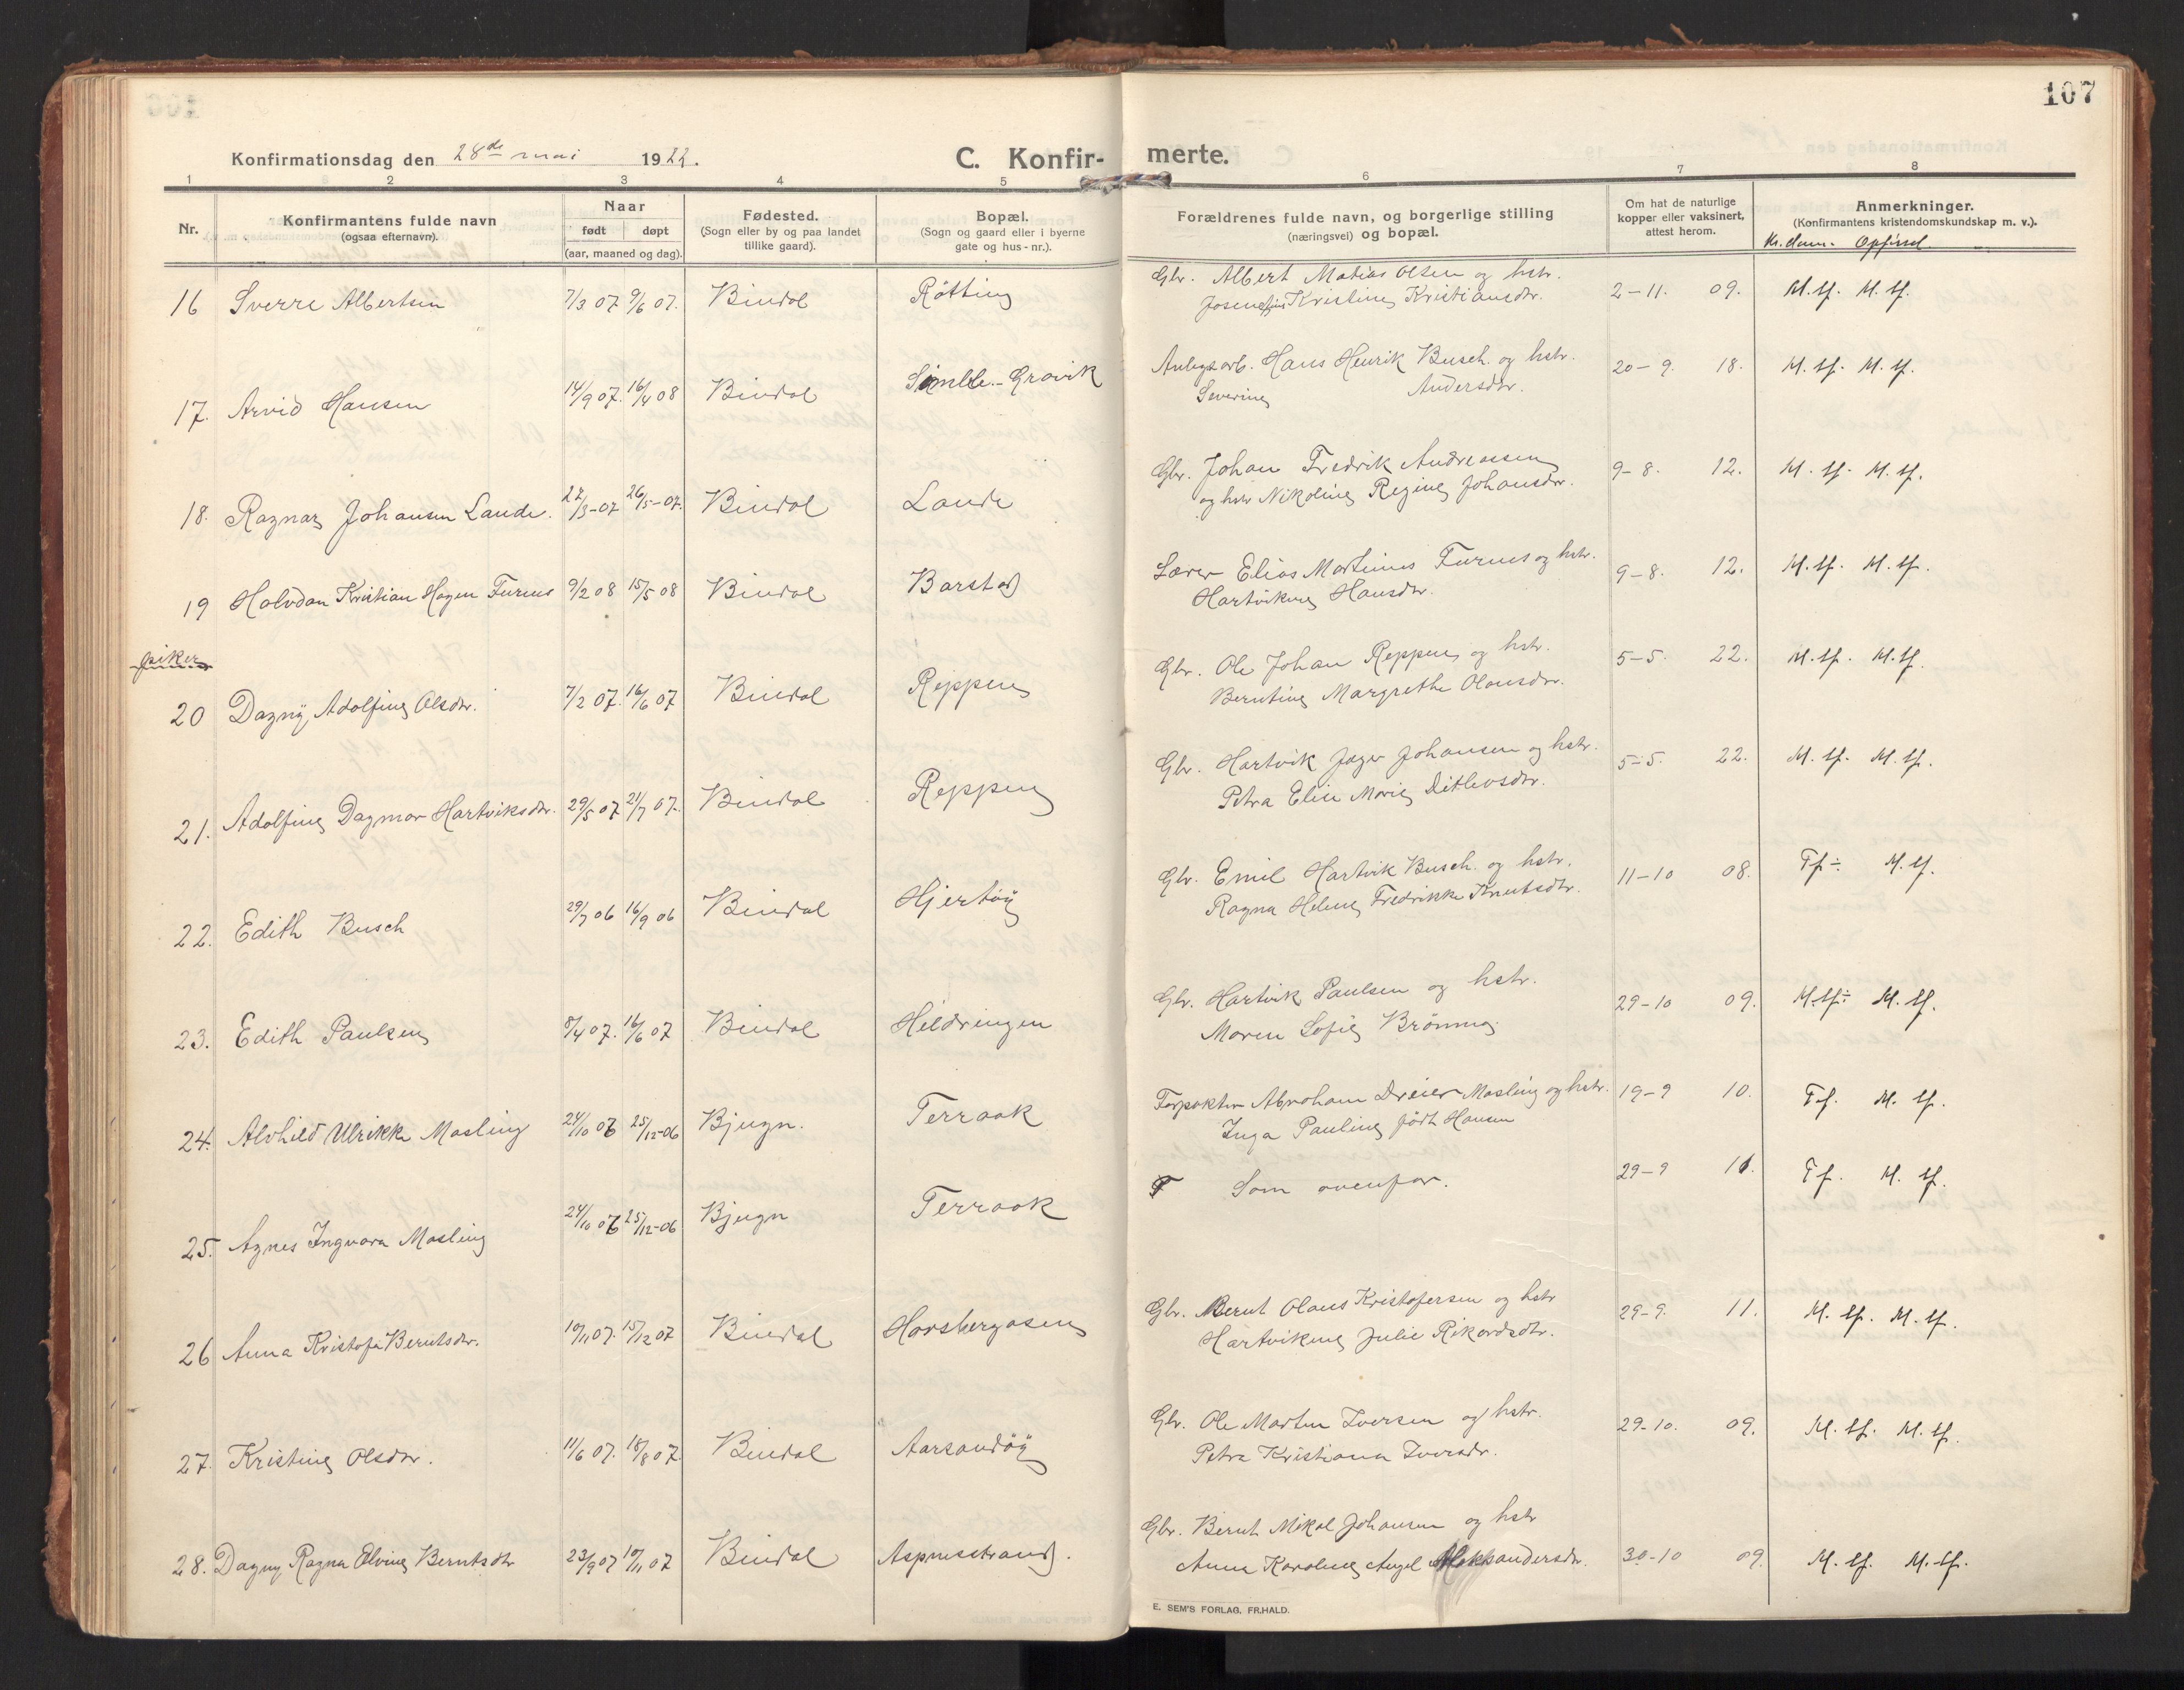 107
Konfirmationsdag den 28de mai 1922.
C. Konfir- merte.
1 2 3 4 5 6 7 8
Nr.
Konfirmantens fulde navn
(ogsaa efternavn).
Naar
født døpt
(aar, maaned og dag).
Fødested.
(Sogn eller by og paa landet
tillike gaard).
Bopæl.
(Sogn og gaard eller i byerne
gate og hus-nr.).
Forældrenes fulde navn, og borgerlige stilling
(næringsvei) og bopæl.
Om hat de naturlige
kopper eller vaksinert,
attest herom.
Anmerkninger.
(Konfirmantens kristendomskundskap m. v.).
Kr.dom. Opførsel
16 Sverre Albertsen 7/3 07 9/6 07. Bindal Røtting Gbr. Albert Matias Olsen og hstr. 2-11. 09. M. tf. M. tf.
Josefine Kristine Kristiansdtr.
17. Arvid Hansen 14/9 07. 16/4 08 Bindal Simle-Gravik Anlegsarb. Hans Henrik Busch. og hstr. 20-9. 18. M. tf. M. tf.
Severine Andersdtr.
18. Ragnar Johansen Lande. 27/3-07 26/5-07. Bindal Lande Gbr. Johan Fredrik Andreassen 9-8. 12. M. tf. M. tf.
og hstr Nikoline Regine Johansdtr.
19 Halvdan Kristian Hagen Furnes 9/2 08 15/5 08 Bindal Barstad Lærer Elias Martinus Furnes og hstr. 9-8. 12. M. tf. M. tf.
Hartvikine Hansdtr.
piker
20 Dagny Adolfine Olsdtr. 7/2 07. 16/6 07 Bindal Reppen Gbr. Ole Johan Reppen og hstr. 5-5. 22. M. tf. M. tf.
Berntine Margrethe Olausdtr.
21. Adolfine Dagmar Hartviksdtr. 29/5 07 21/7 07. Bindal Reppen Gbr. Hartvik Jager Johansen og hstr. 5-5. 22. M. tf. M. tf.
Petra Elise Marie Ditlevsdtr.
22. Edith Busch 29/7 06 16/9 06 Bindal Hjertøy Gbr. Emil Hartvik Busch. og hstr. 11-10 08. Tf÷ M. tf.
Ragna Helene Fredrikke Knutsdtr.
23. Edith Paulsen 8/4 07. 16/6 07 Bindal Heldringen Gbr. Hartvik Paulsen og hstr. 29-10 09. M.tf÷ M. tf.
Maren Sofie Brønmo.
24. Alvhild Ulrikke Masling 24/10 06 25/12-06 Bjugn. Terraak Forpakter Abraham Dreier Masling og hstr. 19-9 10. Tf. M. tf.
Inga Pauline født Hansen
25. Agnes Ingvara Masling 24/10 06 25/12-06 Bjugn Terraak Som ovenfor. 29-9 11. Tf. M. tf.
26 Anna Kristofa Berntsdtr. 10/11 07. 15/12 07 Bindal Horsbergasen Gbr. Bernt Olaus Kristofersen og hstr 29-9. 11. M. tf. M. tf.
Hartvikine Julie Rikardsdtr.
27. Kristine Olsdtr. 11/6 07. 18/8 07. Bindal Aarsandøy Gbr. Ole Martin Iversen og hstr. 29-10. 09. M. tf. M. tf.
Petra Kristiana Iversdtr.
28. Dagny Ragna Elvine Berntsdtr 23/9 07 10/11 07 Bindal Aspnesstrand. Gbr. Bernt Mikal Johansen og hstr 30-10 09. M. tf. M. tf.
Anna Karoline Angel Aleksandersdtr.
E. SEM'S FORLAG, FR.HALD.